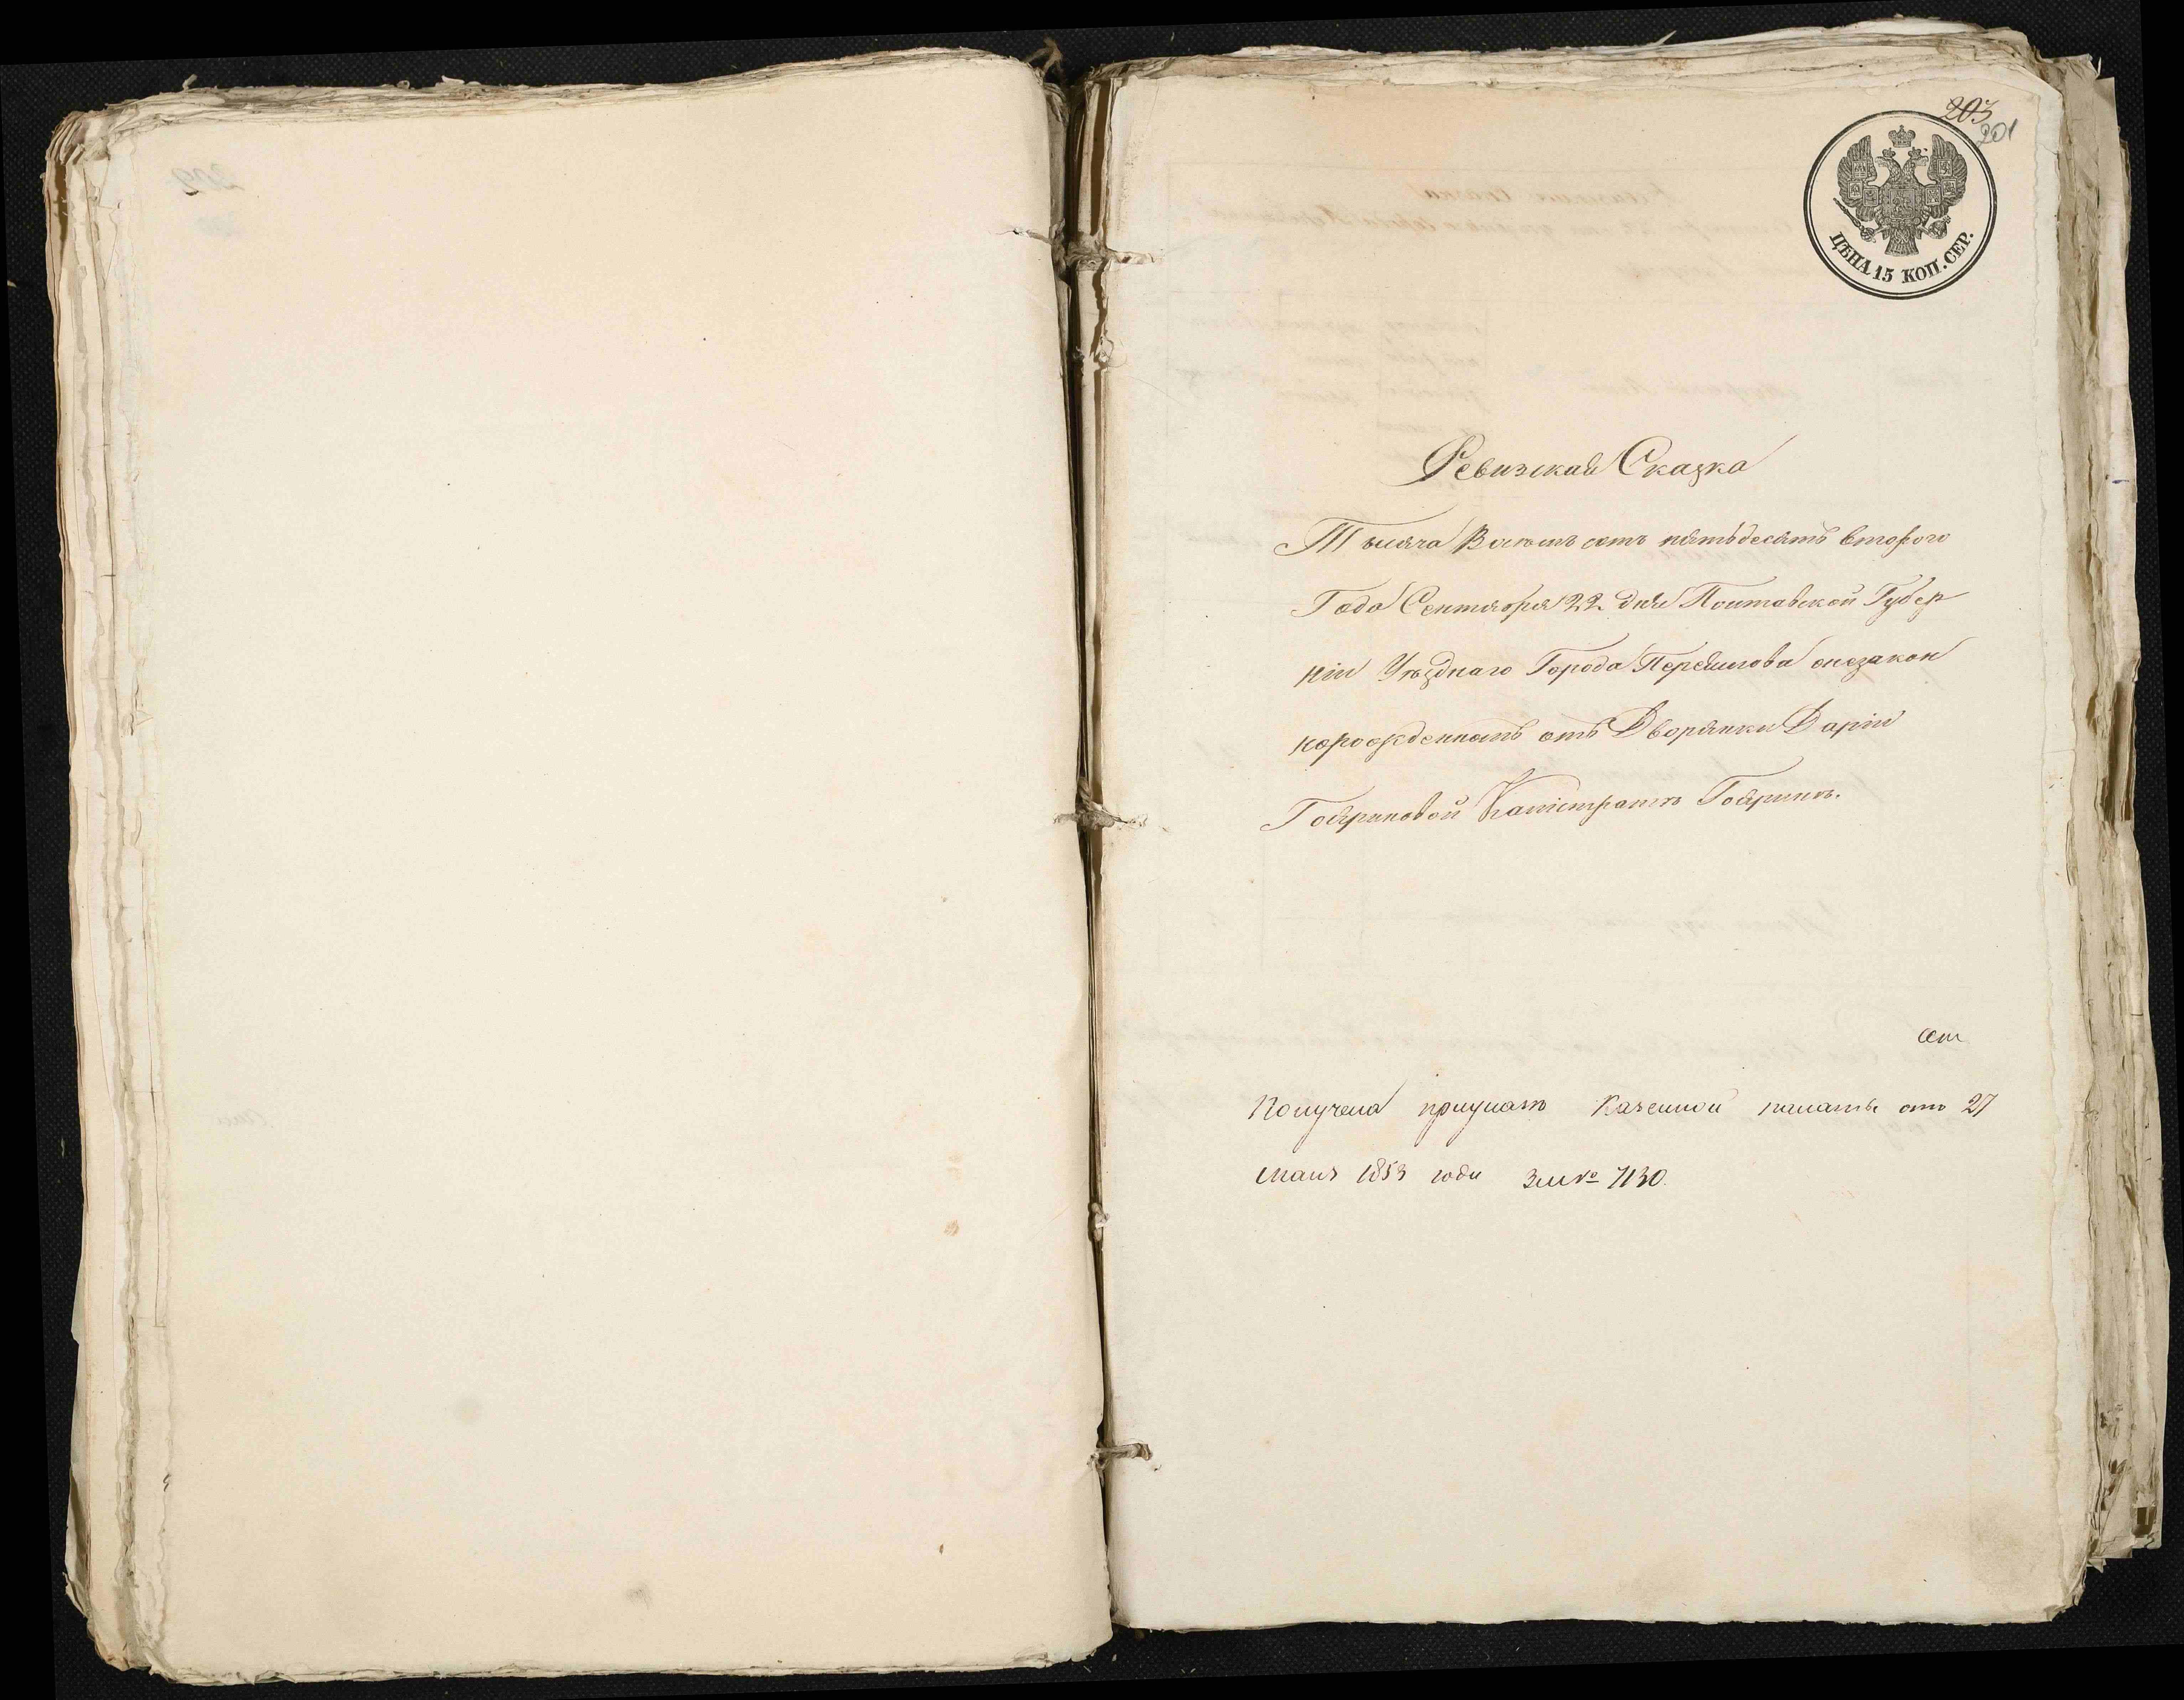 203
201
ЦѢНА 15 КОП. СЕР.
Ревизская Сказка
Тысяча Восемъ сотъ пятьдесятъ второго
Года Сентября 22 дня Полтавской Губер
ніи Уѣзднаго Города онезакон
норожденномъ отъ Дворянки Даріи
Калістратъ
Получена при указѣ Казенной палаты отъ 27
мая 1853 года за № 7130.